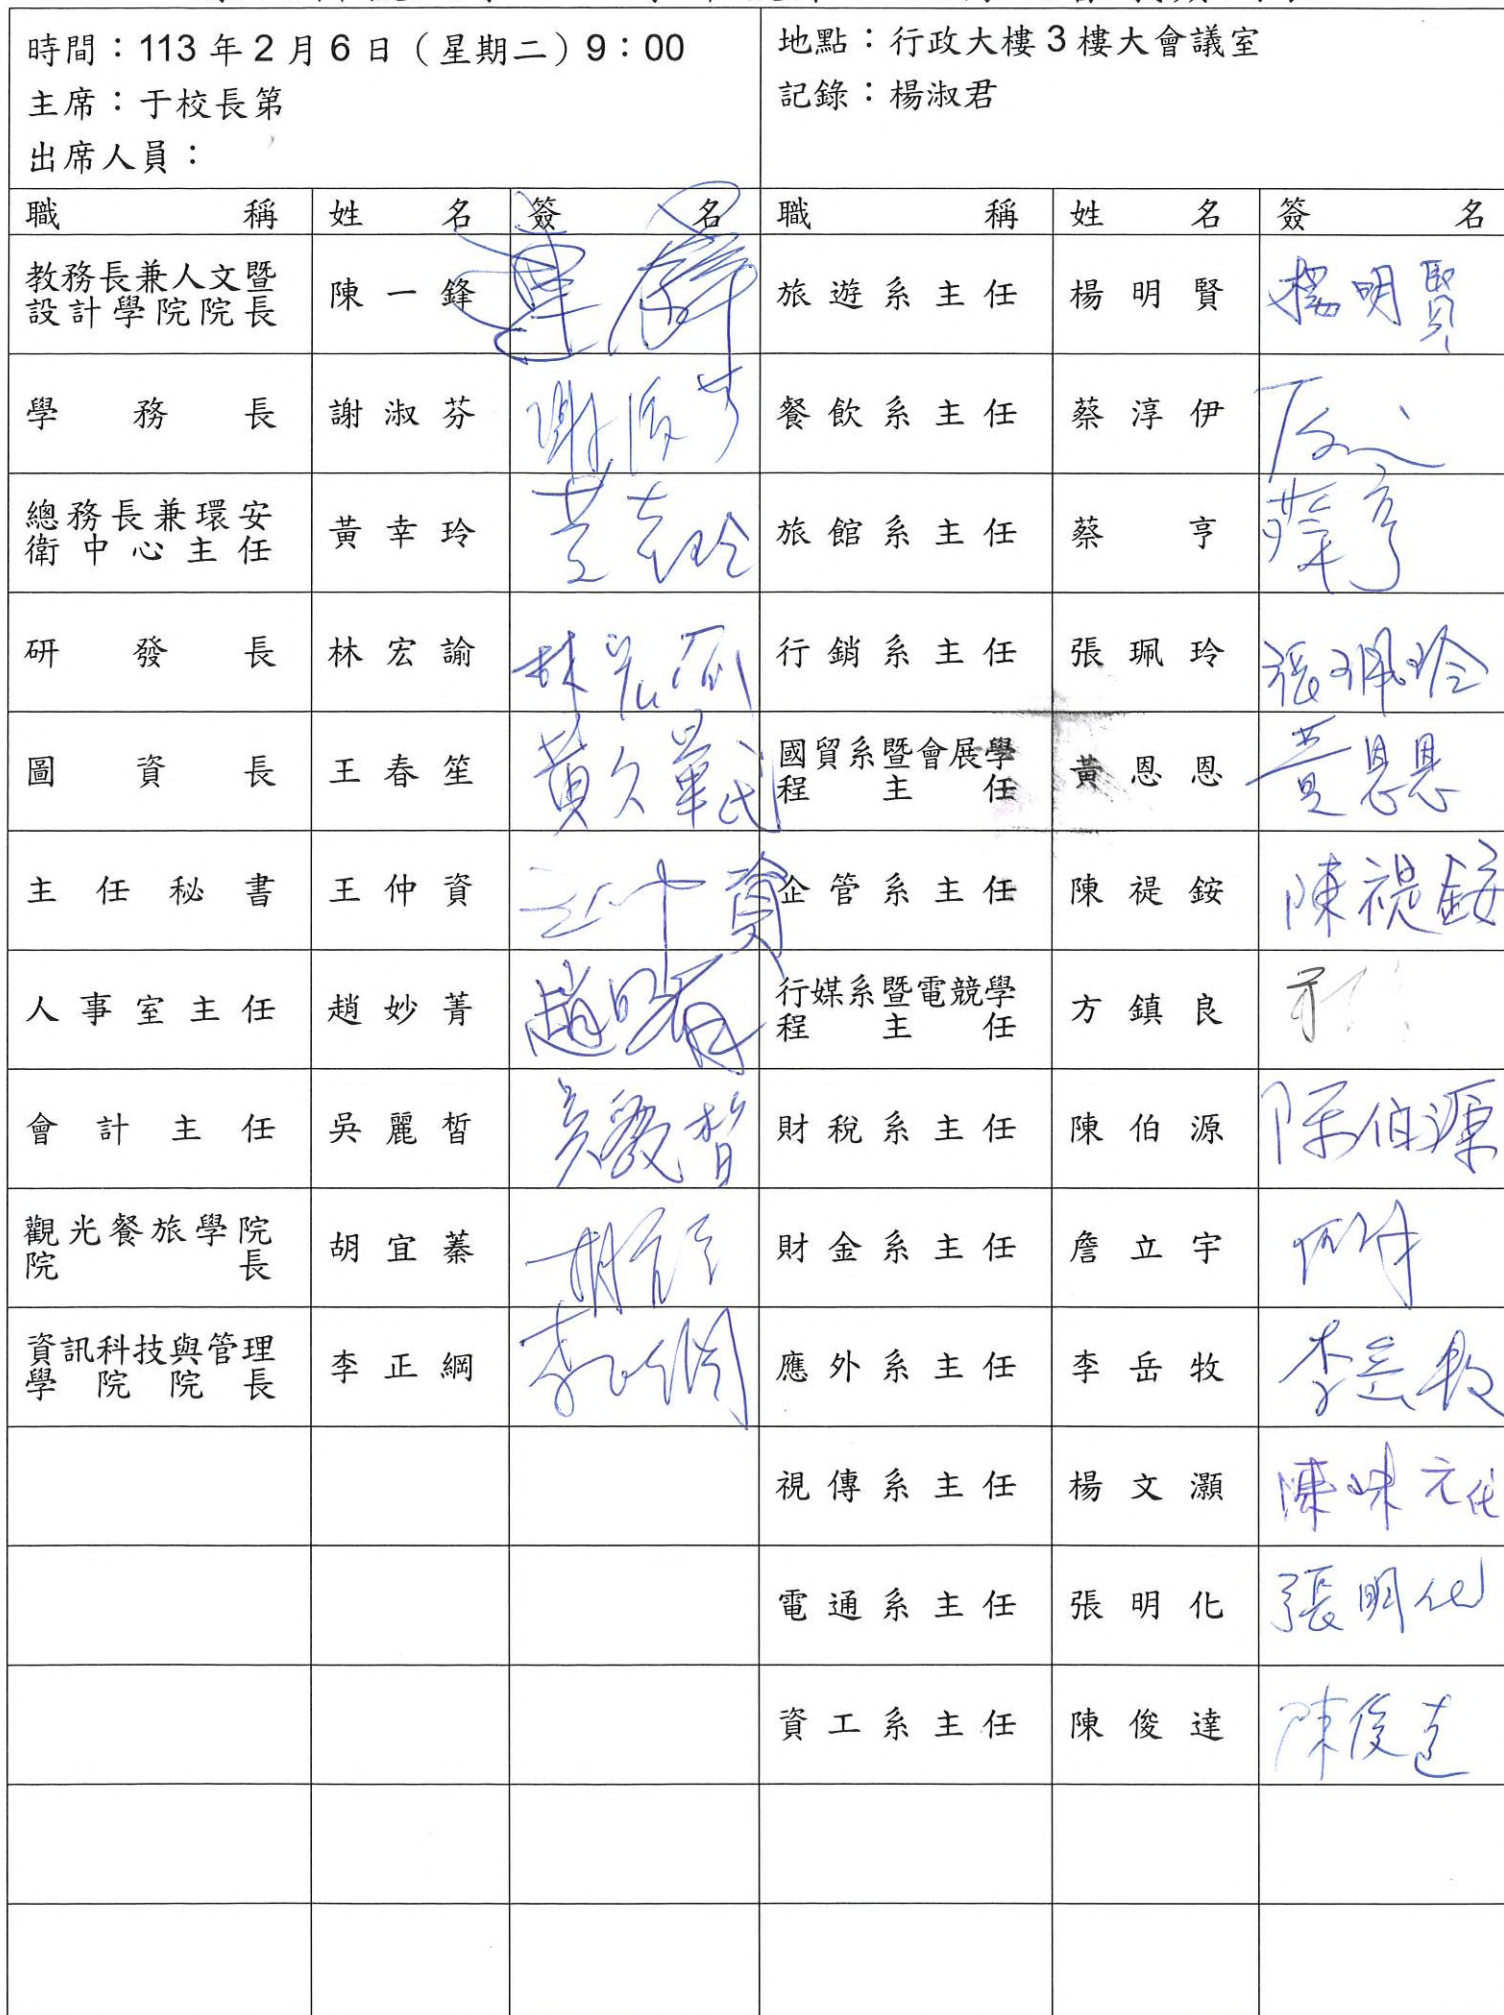 時間：113 年 2 月 6 日（星期二）9：00
主席：于校長第
出席人員：
地點：行政大樓 3 樓大會議室
記錄：楊淑君
職稱 姓名 簽名 職稱 姓名 簽名
教務長兼人文暨
設計學院院長
陳一鋒
旅遊系主任 楊明賢 楊明賢
學務長 謝淑芬 謝淑芬
餐飲系主任 蔡淳伊
總務長兼環安
衛中心主任
黃幸玲
旅館系主任 蔡亨 蔡亨
研發長 林宏諭
行銷系主任 張珮玲 張珮玲
圖資長 王春笙
國貿系暨會展學
程主任
黃恩恩 黃恩恩
主任秘書 王仲資 王仲資
企管系主任 陳禔銨 陳禔銨
人事室主任 趙妙菁
行媒系暨電競學
程主任
方鎮良
會計主任 吳麗皙 吳麗皙
財稅系主任 陳伯源 陳伯源
觀光餐旅學院
院長
胡宜蓁
財金系主任 詹立宇
資訊科技與管理
學院院長
李正綱 李正綱
應外系主任 李岳牧 李岳牧
視傳系主任 楊文灝
電通系主任 張明化 張明化
資工系主任 陳俊達 陳俊達